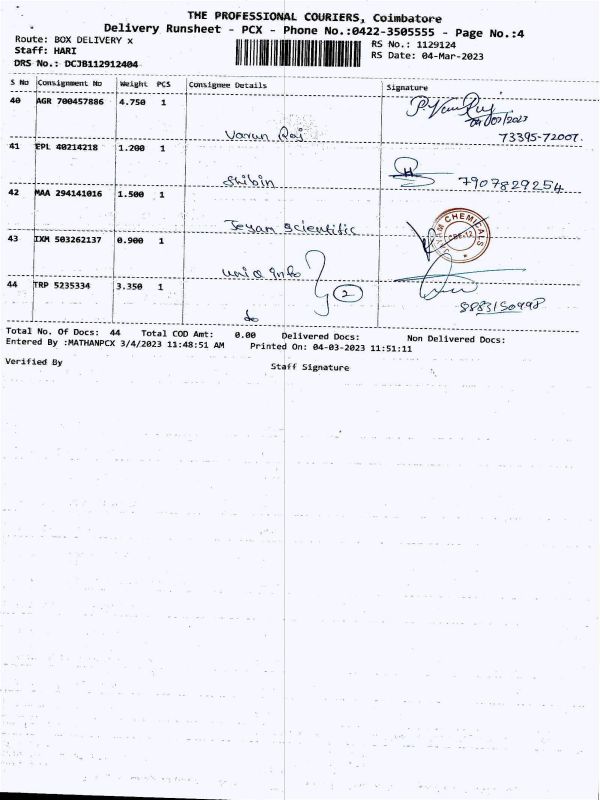 THE PROFESSIONAL COURIERS, Coimbatore
Delivery Runsheet - PCX - Phone No.:0422-3505555 - Page No.:4
Route: BOX DELIVERY x
RS No.: 1129124
Staff: HARI
RS Date: 04-Mar-2023
DRS No.: DCJB112912404
S No Consignment No Weight PCS Consignee Details Signature
40 AGR 700457886 4.750 1
Varun Raj 73395-72007.
41 EPL 40214218 1.200 1
Shibin 7907829254
42 MAA 294141016 1.500 1
Jeyam Scientific CHEMICALS
43 IXM 503262137 0.900 1
Uniq Info
44 TRP 5235334 3.350 1 2
do 8883150998
Total No. Of Docs: 44 Total COD Amt: 0.00 Delivered Docs: Non Delivered Docs:
Entered By :MATHANPCX 3/4/2023 11:48:51 AM Printed On: 04-03-2023 11:51:11
Verified By Staff Signature